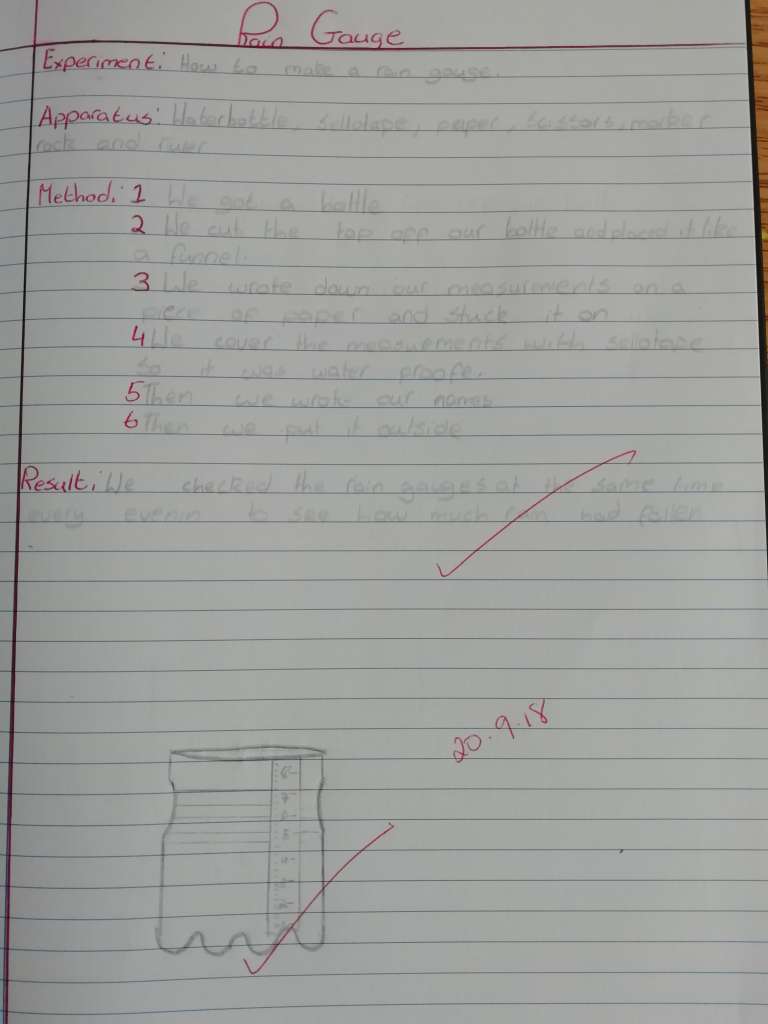 Rain Gauge
Experiment: How to make a rain gauge.
Apparatus: Waterbottle, sellotape, paper, scissors, marker
rock and ruler
Method: 1 We got a bottle
2 We cut the top opp our bottle and placed it like
a funnel.
3 We wrote down our measurments on a
piece of paper and stuck it on
4 We cover the measuements with sellotape
so it was water proofe.
5 Then we wrote our names
6 Then we put it outside
Result: We checked the rain gauges at the same time
every evenin to see how much rain had fallen
20.9.18
8
7
6
5
4